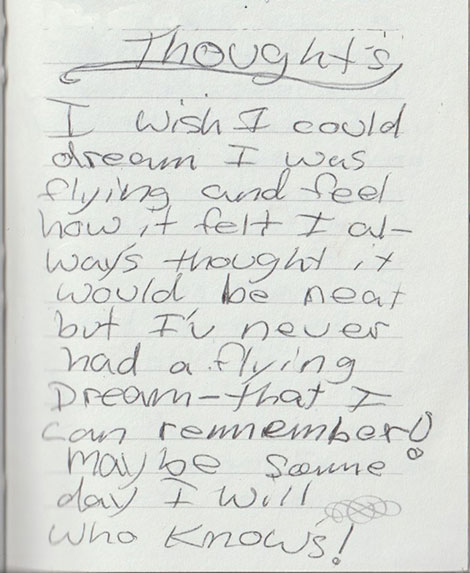 Thought's
I wish I could
dream I was
flying and feel
how it felt I al-
ways thought it
would be neat
but I'v never
had a flying
Dream-that I
can remember!
maybe some
day I will
who knows!